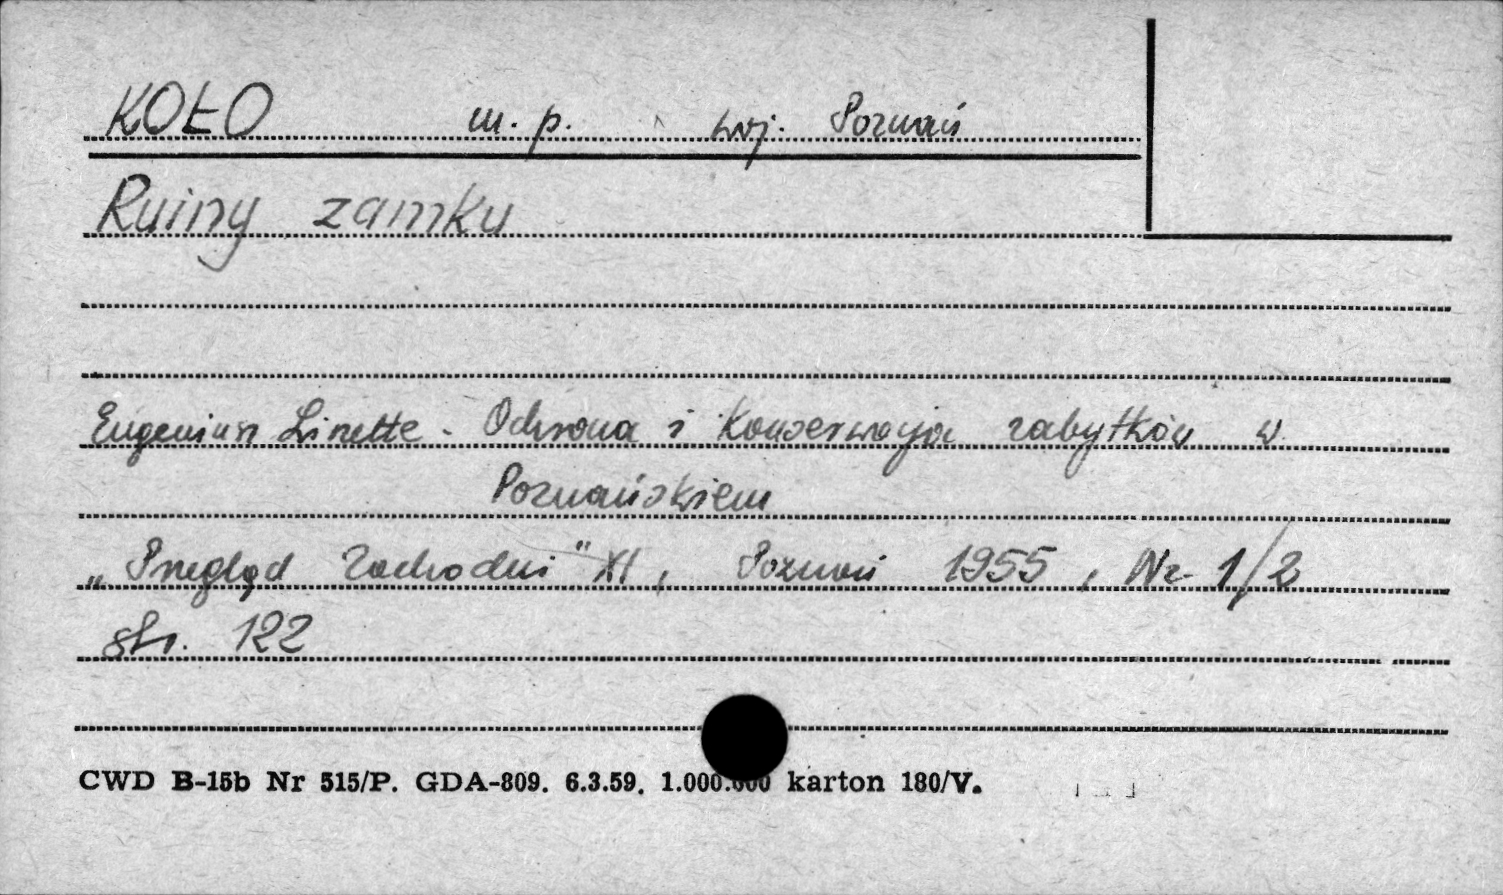 KOŁO m. p. woj. Poznań
Ruiny zamku
Eugeniusz Linette - Ochrona i Konserwacja zabytków w
Poznańskiem
„Przegląd Zachodni" XI, Poznań 1955, Nr 1/2
str. 122
CWD B-15b Nr 515/P. GDA-809. 6.3.59. 1.000.000 karton 180/V.